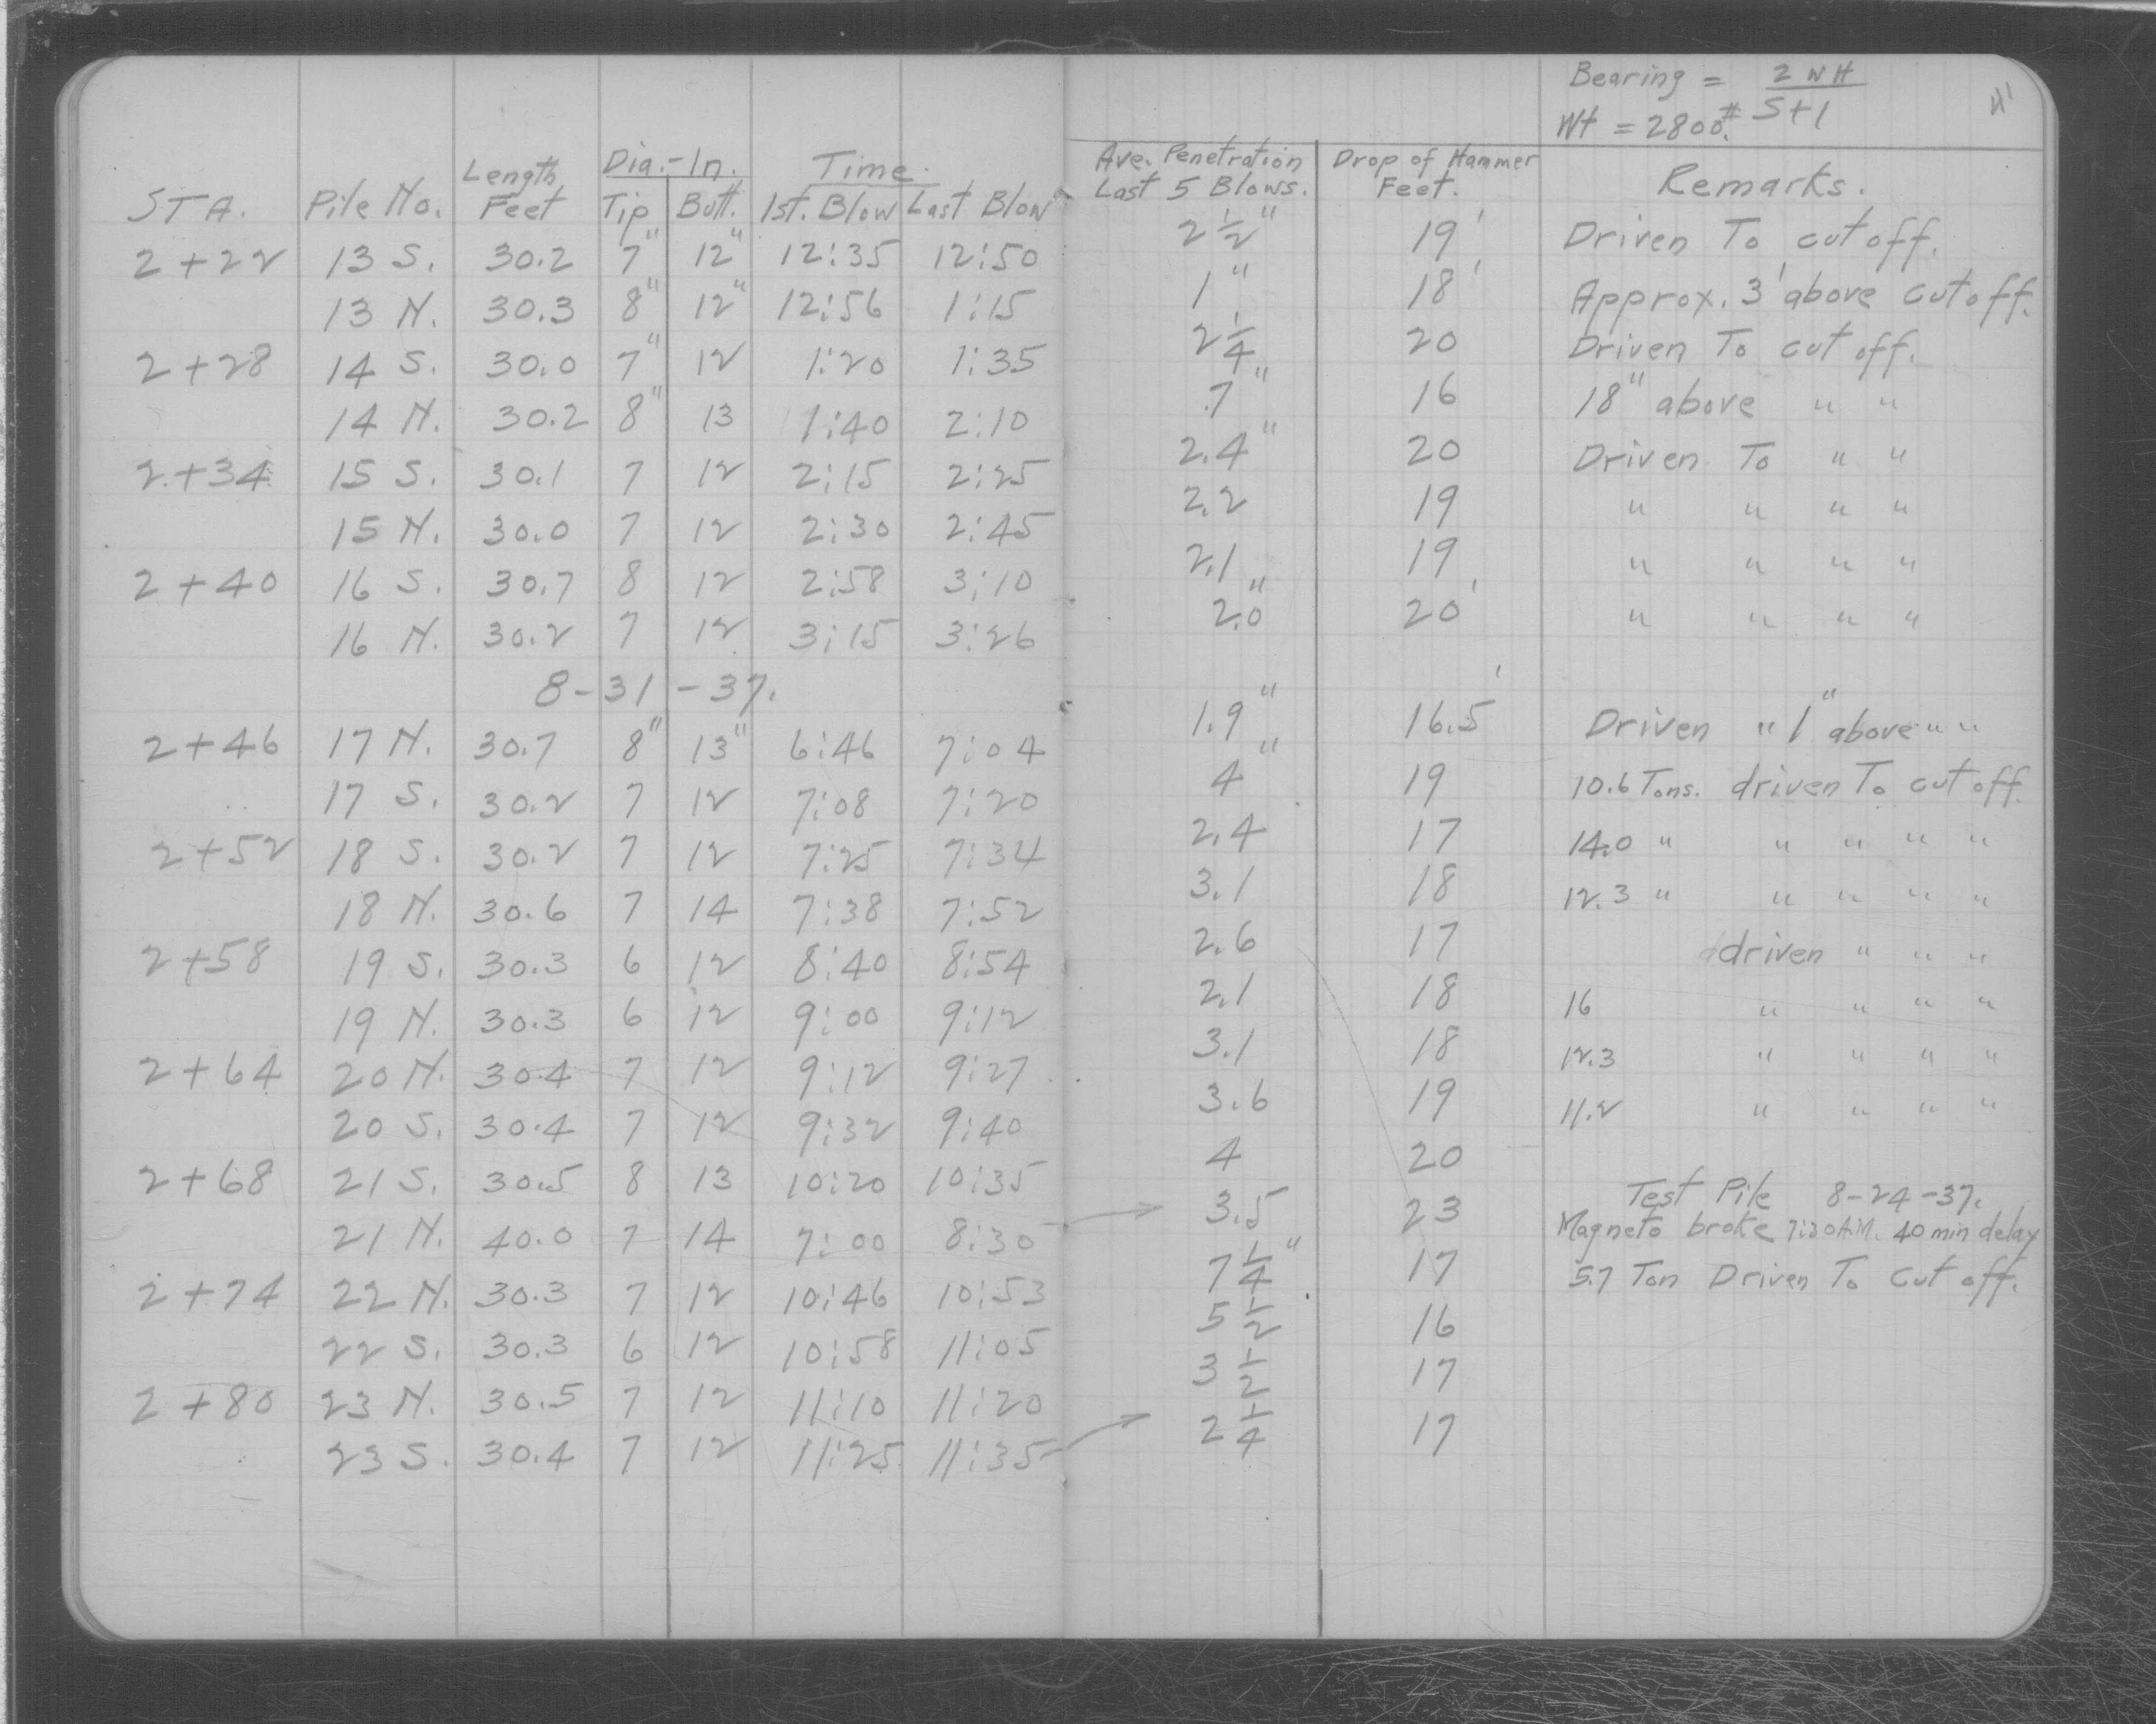 Bearing = 2WH / S+1
Wt = 2800#.
STA. Pile No. Length Feet Dia.-In. Tip Butt. Time. 1st. Blow Last Blow Ave. Penetration Last 5 Blows. Drop of Hammer Feet. Remarks.
2+22 13 S. 30.2 7" 12" 12:35 12:50 2 1/2" 19' Driven To cut off.
13 N. 30.3 8" 12" 12:56 1:15 1" 18' Approx. 3' above cut off.
2+28 14 S. 30.0 7" 12 1:20 1:35 2 1/4 20 Driven To cut off.
14 N. 30.2 8" 13 1:40 2:10 .7" 16 18" above " "
2+34 15 S. 30.1 7 12 2:15 2:25 2.4" 20 Driven To " "
15 N. 30.0 7 12 2:30 2:45 2.2 19 " " " "
2+40 16 S. 30.7 8 12 2:58 3:10 2.1 19 " " " "
16 N. 30.2 7 12 3:15 3:26 2.0" 20' " " " "
8-31-37.
2+46 17 N. 30.7 8" 13" 6:46 7:04 1.9" 16.5' Driven " 1" above " "
17 S. 30.2 7 12 7:08 7:20 4" 19 10.6 Tons. driven To cut off
2+52 18 S. 30.2 7 12 7:25 7:34 2.4 17 14.0 " " " " "
18 N. 30.6 7 14 7:38 7:52 3.1 18 12.3 " " " " "
2+58 19 S. 30.3 6 12 8:40 8:54 2.6 17 driven " " "
19 N. 30.3 6 12 9:00 9:12 2.1 18 16 " " " "
2+64 20 N. 30.4 7 12 9:12 9:27 3.1 18 12.3 " " " "
20 S. 30.4 7 12 9:32 9:40 3.6 19 11.2 " " " "
2+68 21 S. 30.5 8 13 10:20 10:35 4 20
21 N. 40.0 7 14 7:00 8:30 3.5 23 Test Pile 8-24-37.
Magneto broke 7:30 A.M. 40 min delay
2+74 22 N. 30.3 7 12 10:46 10:53 7 1/4" 17 5.7 Ton Driven To Cut off.
22 S. 30.3 6 12 10:58 11:05 5 1/2 16
2+80 23 N. 30.5 7 12 11:10 11:20 3 1/2 17
23 S. 30.4 7 12 11:25 11:35 2 1/4 17